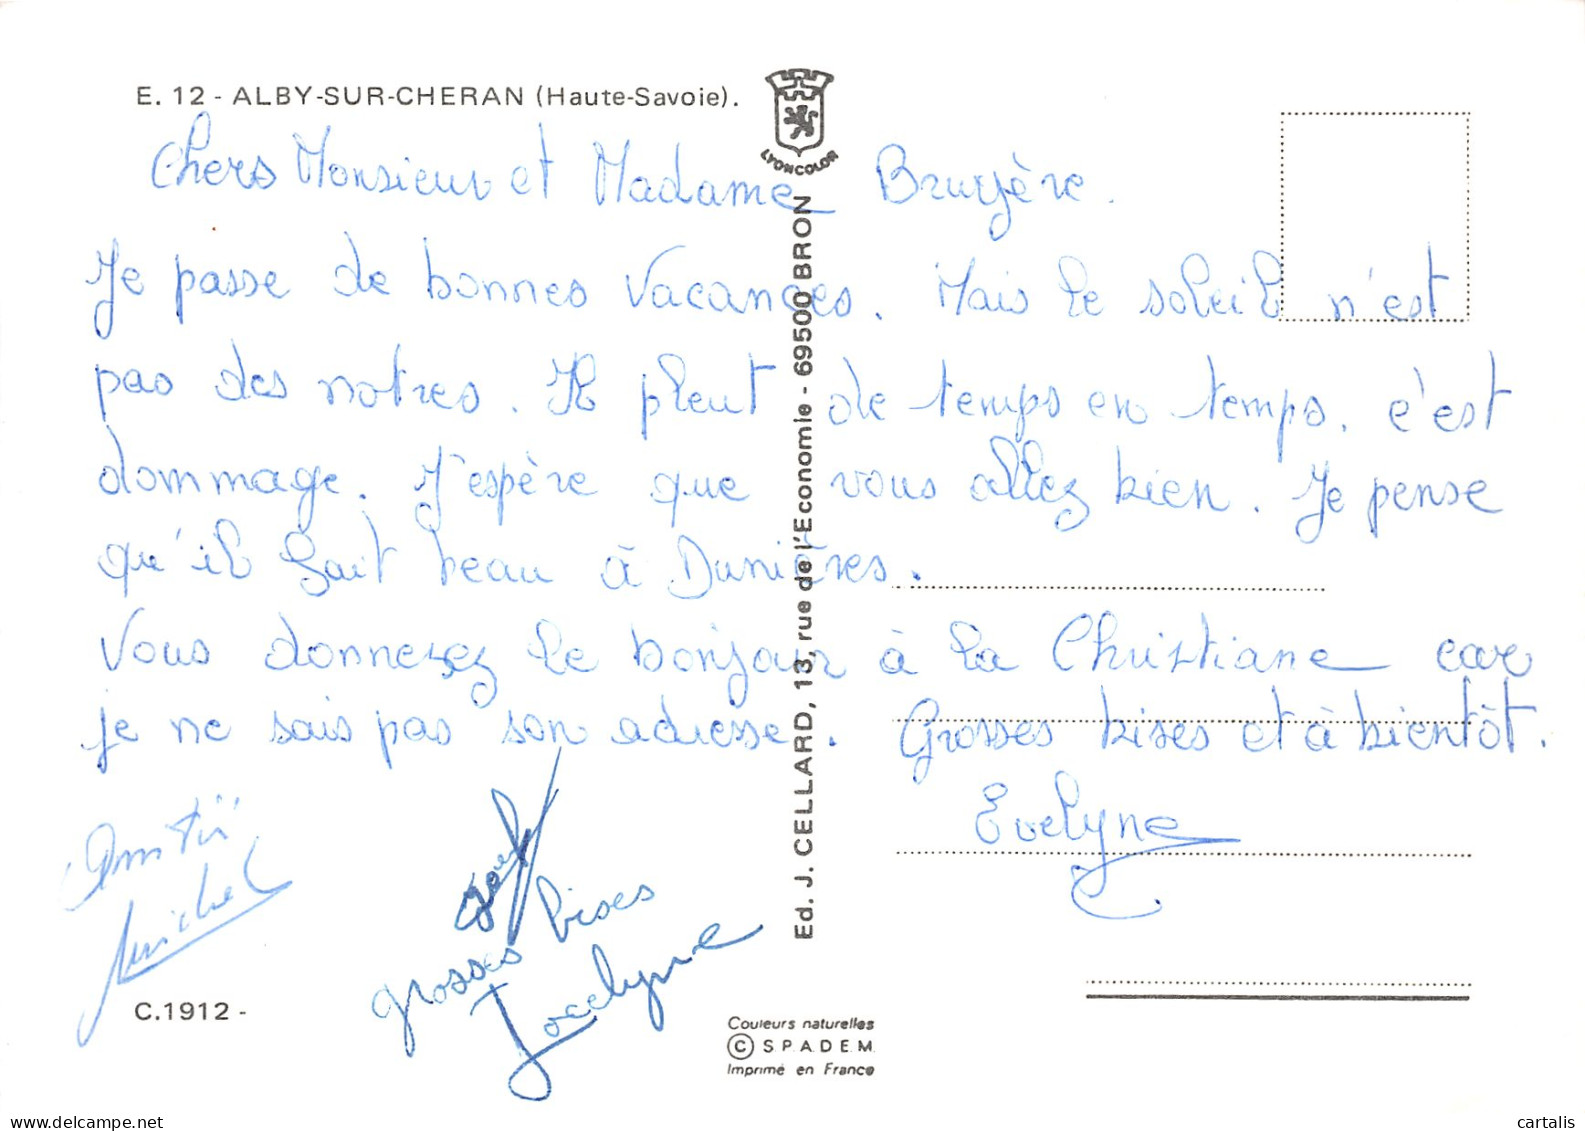 E. 12 - ALBY-SUR-CHERAN (Haute-Savoie).
LYONCOLOR
Chers Monsieur et Madame Bruyère.
Je passe de bonnes vacances. Mais le soleil n'est
pas des notres. Il pleut de temps en temps. c'est
dommage. J'espère que vous allez bien. Je pense
qu'il fait beau à Dunières.
Vous donnerez le bonjour à la Christiane car
je ne sais pas son adresse. Grosses bises et à bientôt.
Evelyne
Amitiï
Michel
grosses bises
Jocelyne
Ed. J. CELLARD, 13, rue de l'Economie - 69500 BRON
C.1912 -
Couleurs naturelles
© S.P.A.D.E.M.
Imprimé en France
delcampe.net
cartalis